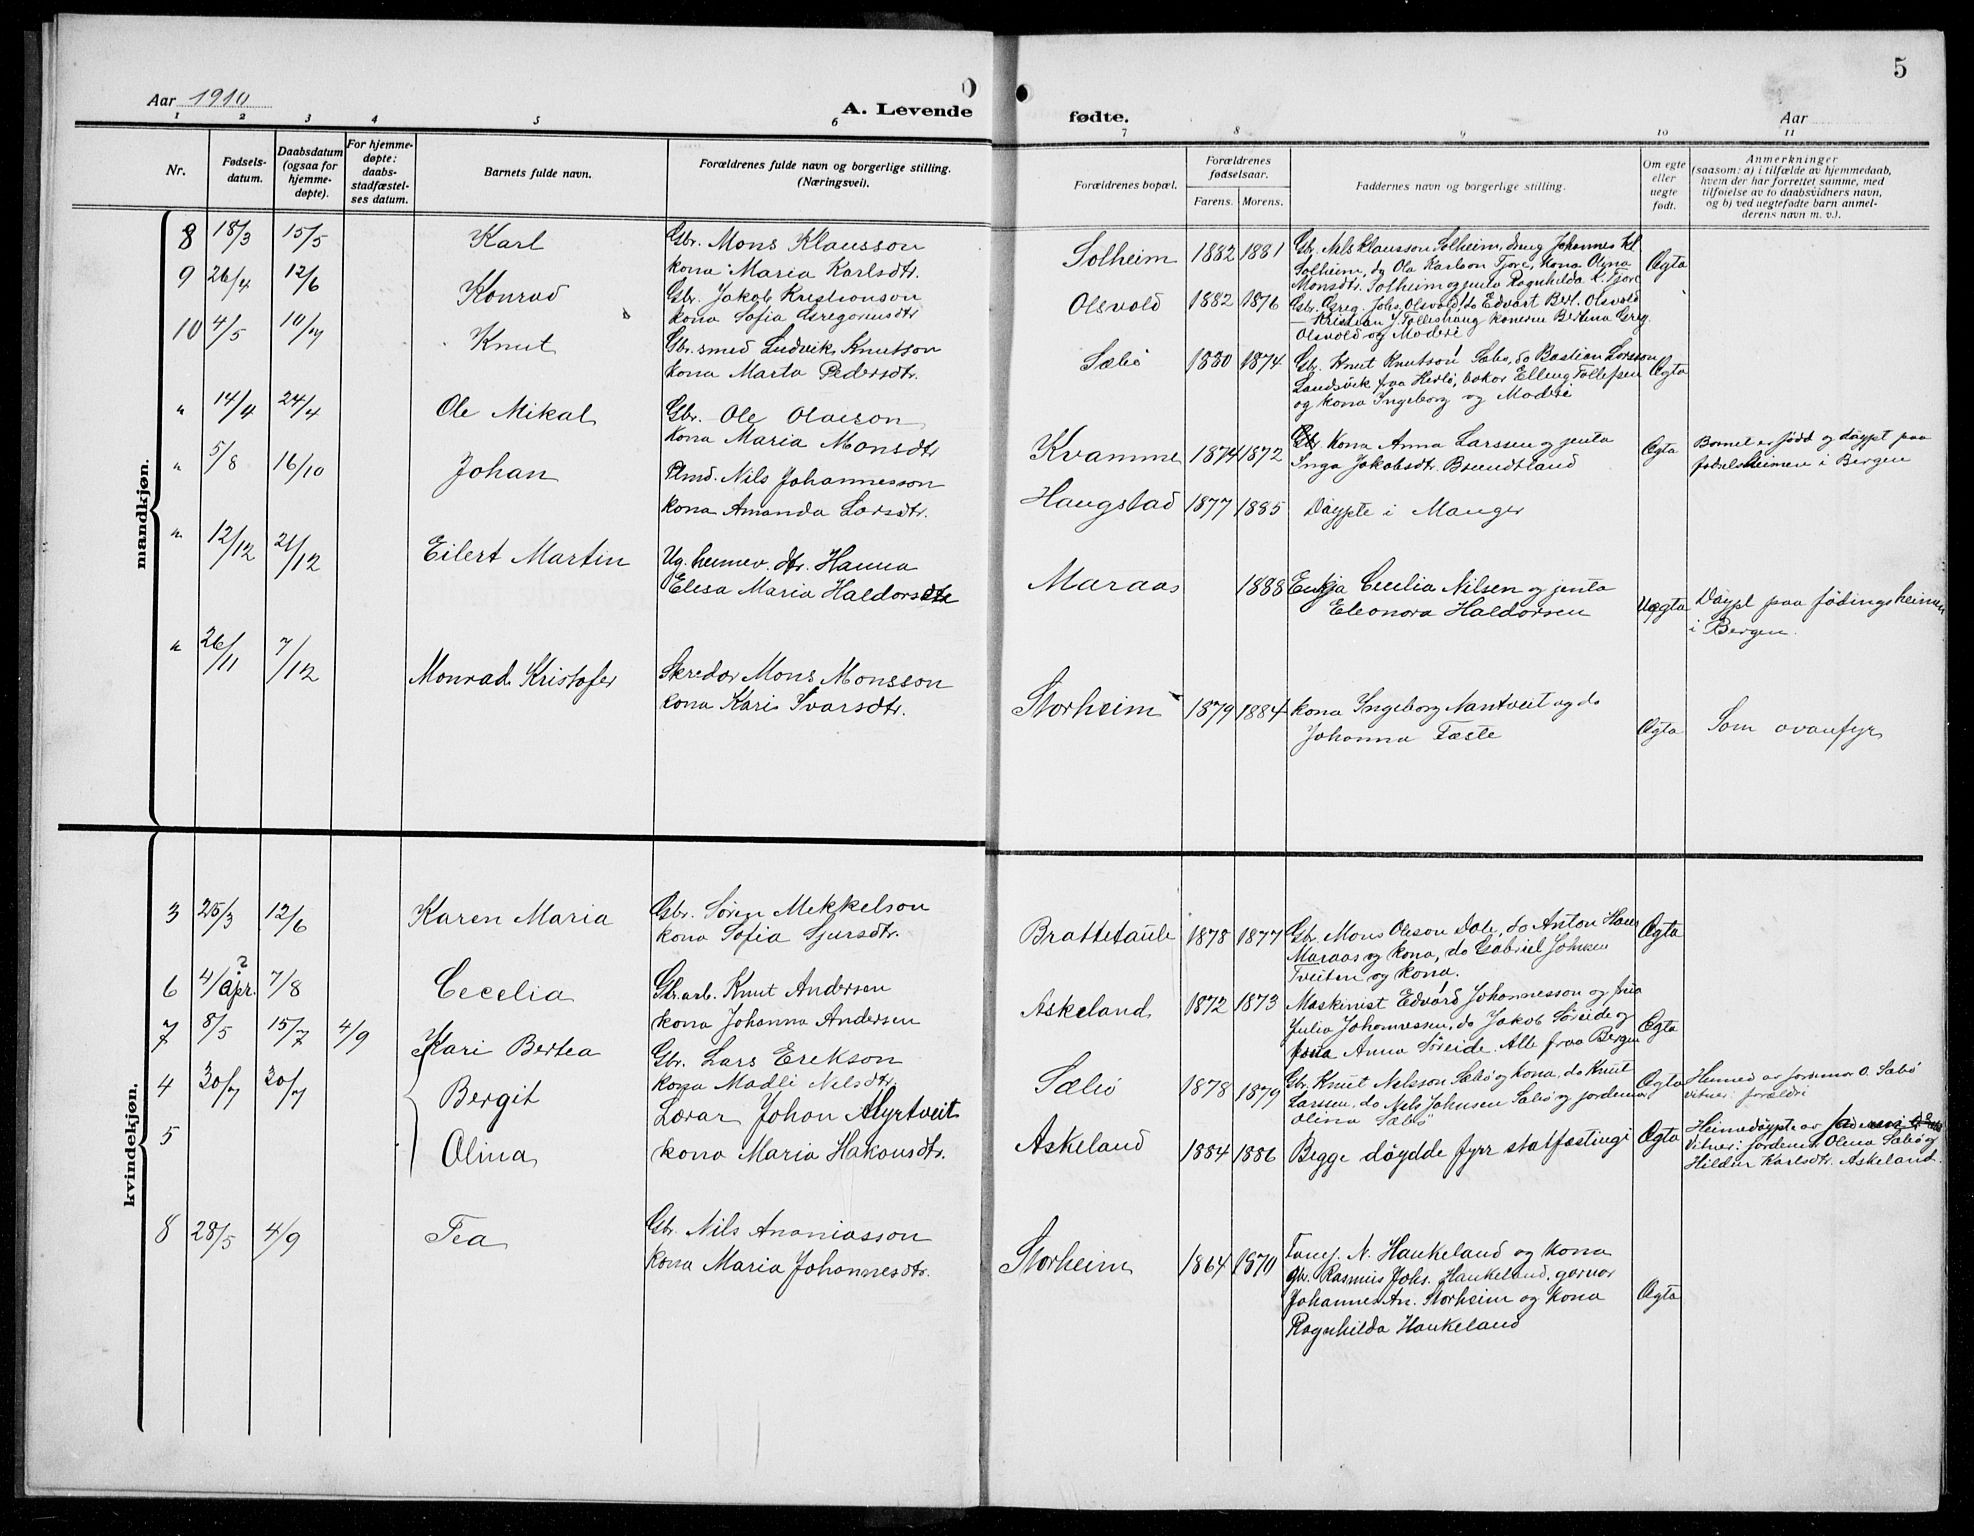 5
Aar 1910
A. Levende
fødte.
Aar
1 2 3 4 5 6
7 8 9 10 11
Nr.
Fødsels-
datum.
Daabsdatum
(ogsaa for
hjemme-
døpte).
For hjemme-
døpte:
daabs-
stadfæstel-
ses datum.
Barnets fulde navn.
Forældrenes fulde navn og borgerlige stilling.
(Næringsvei).
Forældrenes bopæl.
Forældrenes
fødselsaar.
Farens. Morens.
Faddernes navn og borgerlige stilling.
Om egte
eller
uegte
født.
Anmerkninger
(saasom: a) i tilfælde av hjemmedaab,
hvem der har forrettet samme, med
tilføielse av to daabsvidners navn,
og b) ved uegtefødte barn anmel-
derens navn m. v.).
mandkjøn.
8 18/3 15/5 Karl Gbr. Mons Klausson
kona Maria Karlsdtr.
Solheim 1882 1881 Gbr. Nils Klausson Solheim, dreng Johannes Kl.
Solheim, do Ola Karlson Fjore, kona Olina
Monsdtr. Solheim og jenta Ragnhilda K. Fjore
Ægta
9 26/4 12/6 Konrad Gbr. Jakob Kristianson
kona Sofia Gregoriusdtr
Olsvold 1882 1876 Gbr. Greg. Johs. Olsvold, do Edvart Berl. Olsvold
— Kristian J. Tolleshaug konerne Bertina Greg.
Olsvold og Moderi
10 4/5 10/7 Knut Gbr. smed Ludvik Knutson
kona Marta Pedersdtr.
Sæbö 1880 1874 Gbr. Knut Knutson Sæbö, do Bastian Larsson
Landsvik fraa Herlö, bakar Elling Tollefsen
og kona Ingeborg og Moderi
Ægta
" 14/4 24/4 Ole Mikal Gbr. Ole Olaeson
Kona Maria Monsdtr
Kvamme 1874 1872 Kona Anna Larssen og jenta
Inga Jakobsdtr. Brundtland
Ægta
Bornet er fødd og döypt paa
fødselsheimen i Bergen
" 5/8 16/10 Johan Plmd. Nils Johannesson
kona Amanda Larsdtr.
Haugstad 1877 1885 Döypte i Manger
" 12/12 21/12 Eilert Martin Ug. heimev. dtr. Hanna
Elesa Maria Haldorsdtr
Maraas 1888 Enkja Cecilia Nilsen og jenta
Eleonora Haldorsen
Uægta
Döypt paa födingsheimen
i Bergen.
" 26/11 7/12 Monrad Kristofer Skredar Mons Monsson
kona Kari Ivarsdtr.
Storheim 1879 1884 kona Ingeborg Nantveit og do
Johanna Tæste
Ægta
Som ovanfyr
kvindekjøn.
3 25/3 12/6 Karen Maria Gbr. Sören Mekkelson
kona Sofia Sjursdtr.
Brattetaule 1878 1877 Gbr. Mons Oleson Dale, do Anton Hans
Maraas og kona, do Gabriel Johnsen
Tveiten og kona.
Ægta
6 4/apr.? 7/8 Cecelia Gbr. arb. Knut Andersen
kona Johanna Andersen
Askeland 1872 1873 Maskinist Edvard Johannesson og frua
Julia Johannessen, do Jakob Söreide og
frua Anna Söreide. Alle fraa Bergen
Ægta
7 8/5 15/7 4/9 Kari Bertea Gbr. Lars Erekson
kona Madli Nilsdtr.
Sæbö 1878 1879 Gbr. Knut Nilsson Sæbö og kona, do Knut
Larssen, do Nils Johnsen Sæbö og jordemor
Olina Sæbö
Ægta
Heimed. av jordmor O. Sæbö
vitner: foreldri
4 30/7 30/7 Bergit
5 Olina
Lærar Johan Myrtveit
kona Maria Hakonsdtr.
Askeland 1884 1886 Begge döydde fyrr statfæstingi
Ægta
Heimedöypte av
Vitner: jordemor Olina Sæbö og
Hildur Karlsdtr. Askeland.
8 28/5 4/9 Tea Gbr. Nils Ananiasson
kona Maria Johannesdtr.
Storheim 1864 1870 N. Haukeland og kona
gbr. Rasmus Johs. Haukeland, garvar
Johannes An. Storheim og kona
Ragnhilda Haukeland
Ægta